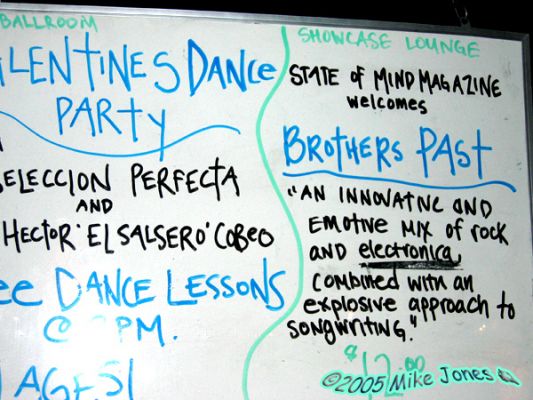 BALLROOM
ALENTINES DANCE
PARTY
ELECCION PERFECTA
AND
HECTOR "EL SALSERO" COBEO
ee DANCE LESSONS
@ PM.
AGES!
SHOWCASE LOUNGE
STATE of MIND MAGAZINE
welcomes
BROTHERS PAST
"AN INNOVATIVE AND
EMOTIVE MIX of rock
AND electronica
COMBINED WITH AN
explosive approach to
SONGWRITING."
$12.00
©2005 Mike Jones